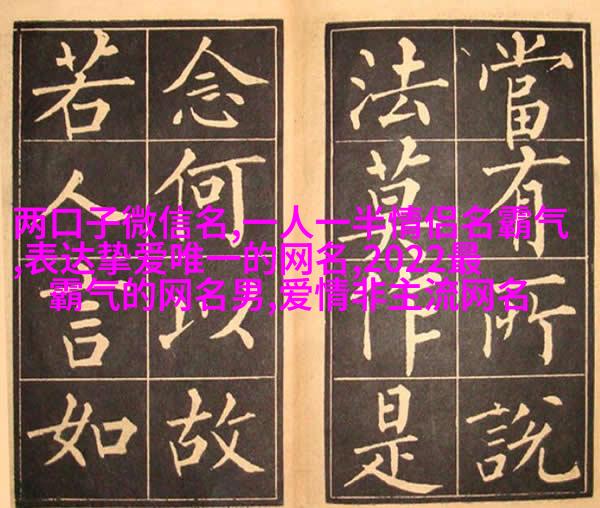 當有所說
法莫作是
念何以故
若人言如
两口子微信名,一人一半情侣名霸气
,表达挚爱唯一的网名,2022最
霸气的网名男,爱情非主流网名